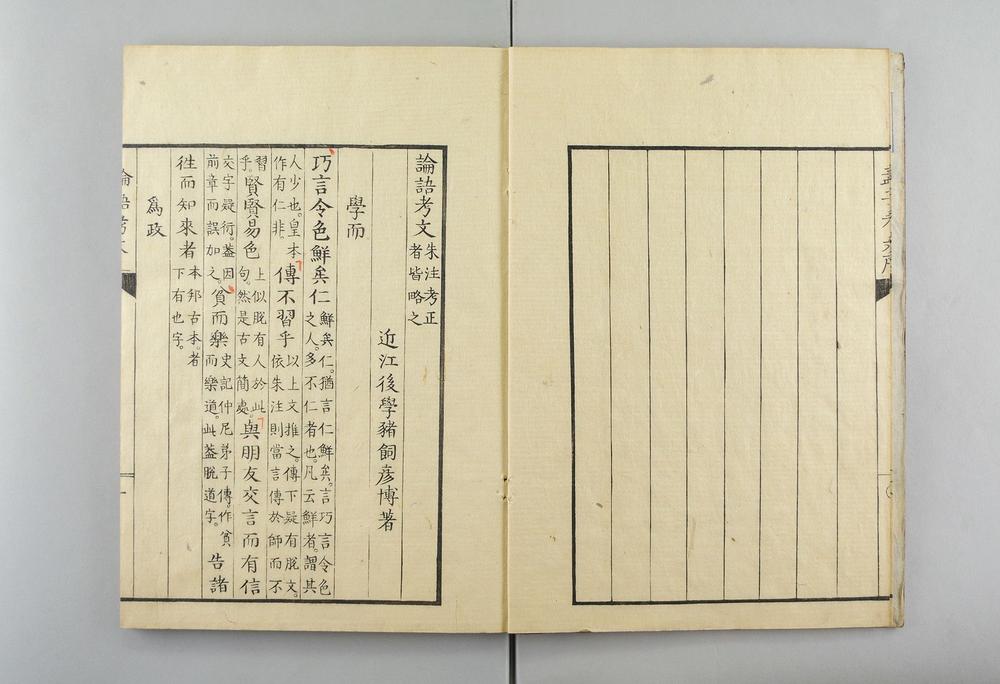 論語考文朱注考正者皆略之
近江後學豬飼彦博著
學而
巧言令色鮮矣仁鮮矣仁。猶言仁鮮矣。言巧言令色之人。多不仁者也。凡云鮮者。謂其
人少也。皇本作有仁非。傳不習乎以上文推之。傳下疑有脫文。依朱注則當言傳於師而不
習乎。賢賢易色上似脫有人於此句。然是古文簡處。與朋友交言而有信
交字疑衍。蓋因前章而誤加之。貧而樂史記仲尼弟子傳。作貧而樂道。此蓋脫道字。告諸
往而知來者本邦古本。者下有也字。
爲政